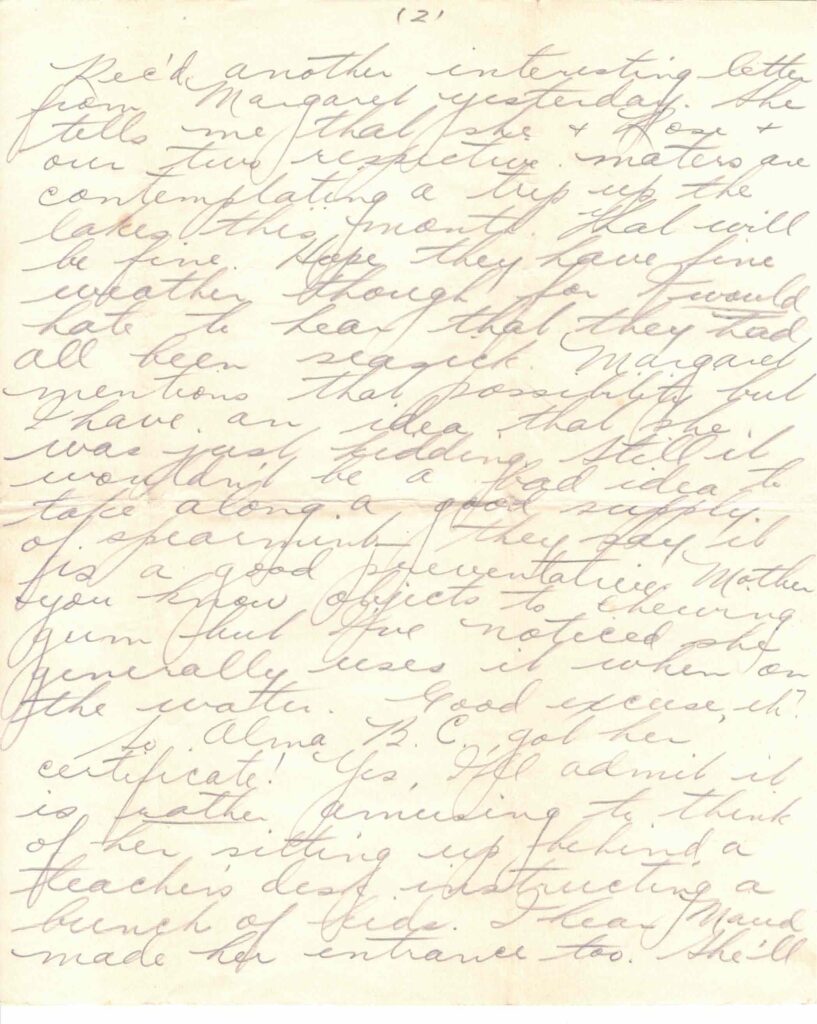 (2)
Rec'd another interesting letter
from Margaret yesterday. She
tells me that she & Rose &
our two respective maters are
contemplating a trip up the
lakes this month. That will
be fine. Hope they have fine
weather though for I would
hate to hear that they had
all been seasick. Margaret
mentions that possibility but
I have an idea that she
was just kidding. Still it
wouldn't be a bad idea to
take along a good supply
of spearmint. They say it
is a good preventative. Mother
you know objects to chewing
gum but I've noticed she
generally uses it when on
the water. Good excuse, eh?
So Alma B. C. got her
certificate! Yes, I'll admit it
is rather amusing to think
of her sitting up behind a
teacher's desk instructing a
bunch of kids. I hear Maud
made her entrance too. She'll